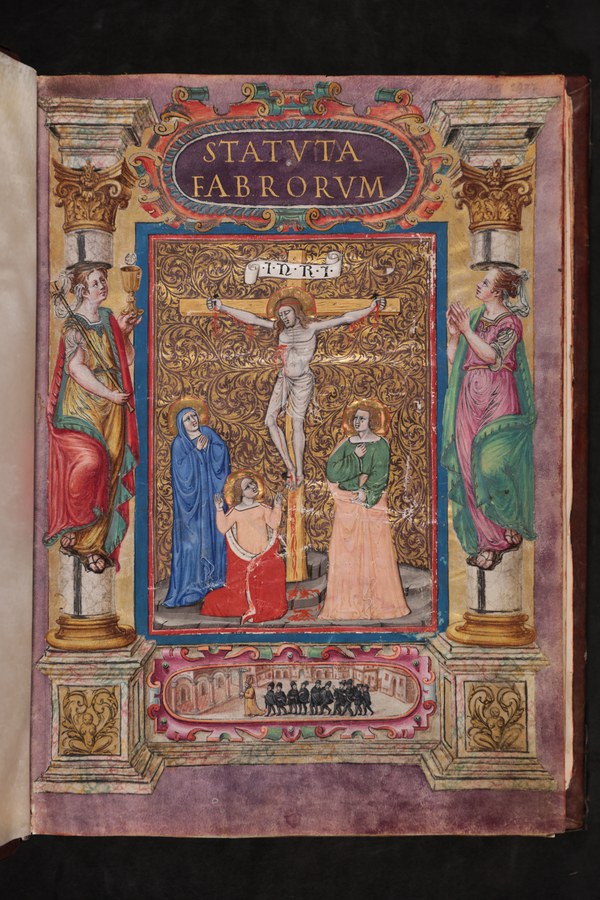 STATVTA
FABRORVM
·I·N·R·I·